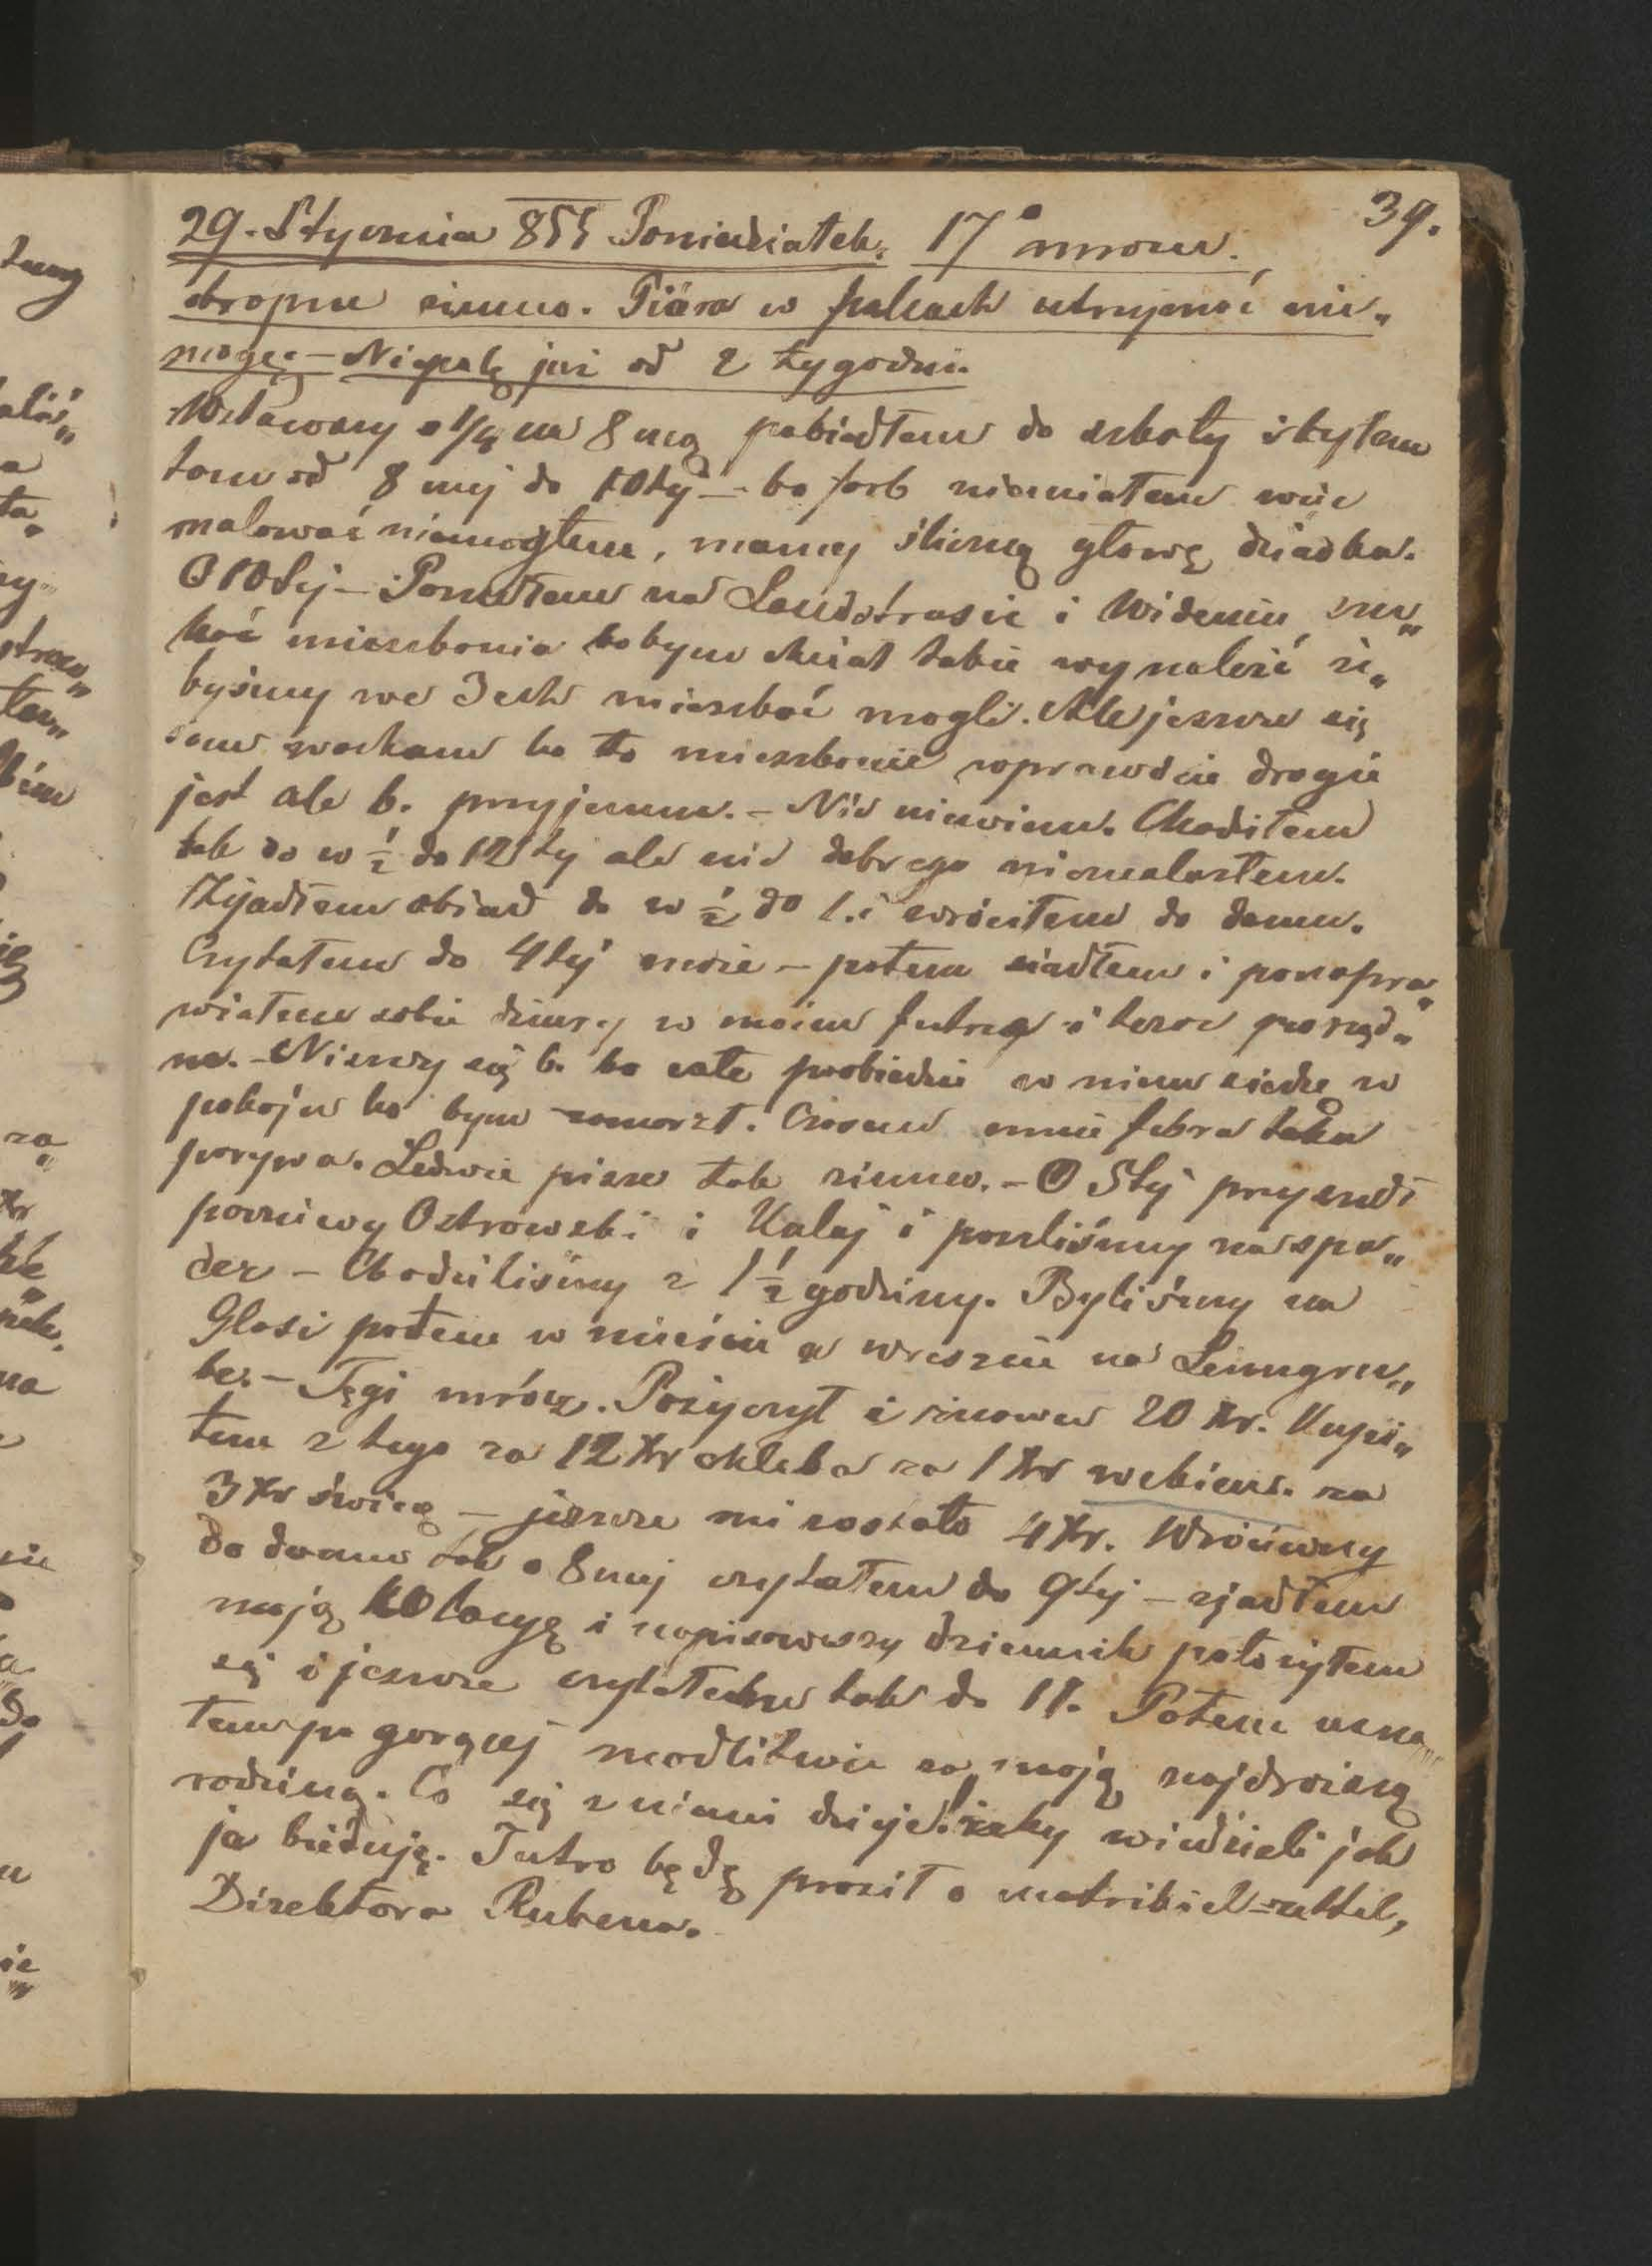 39.
29. Stycznia 855 Poniedziałek. 17° mrozu.
okropne zimno. Pióra w palcach utrzymać nie„
mogę – Niepalę już od 2 tygodni.
Wstawszy o 1/4 na 8mą pobiedłem do szkoły i byłem
tam od 8mej do 10tej – bo farb niemiałem więc
malować niemogłem, mamy śliczną głowę dziadka.
O 10tej – Poszedłem na Landstrasie i Wideniu, szu„
kać mieszkania bobym chciał takie wynaleźć że„
byśmy we 3ech mieszkać mogli. Ale jeszcze się
sam waham bo to mieszkanie wprawdzie drogie
jest ale b. przyjemne. – Nic niewiem. Chodziłem
tak do w ½ do 12tej ale nic dobrego nieznalazłem.
Zjadłem obiad do w ½ do 1. i wróciłem do domu.
Czytałem do 4tej może – potem siadłem i ponapra„
wiałem sobie dziury w moim futrze i teraz porząd„
ne. – Niszczy się b. bo całe pobiedzie w niem siedzę w
pokoju bo bym zamarzł. Czasem mnie febra taka
porywa. Ledwie piszę tak zimno. – O 5tej przyszedł
poczciwy Ostrowski i Kalaj i poszliśmy na spa„
cer – Chodziliśmy z 1½ godziny. Byliśmy na
Glasi potem w mieście a wreszcie na Leimgru„
be. – Tęgi mróz. Pożyczył i znowu 20 Xr. Kupi„
łem z tego za 12 Xr chleba za 1 Xr za
3 Xr świcę – jeszcze mi zostało 4 Xr. Wróciwszy
do domu tak o 8mej czytałem do 9tej – zjadłem
moją kolacyę i napisawszy dziennik położyłem
się i jeszcze czytałem tak do 11. Potem usną„
łem po gorącej modlitwie za moją najdroższą
rodzinę. Co się z niemi dzieje! żeby wiedzieli jak
ja bieduję. Jutro będę prosił o matrikiel=zettel,
Direktora Rubena.